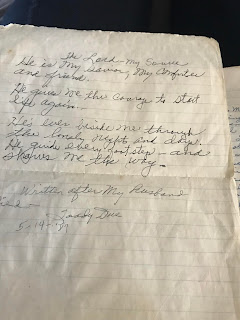 the Lord - My Savior
He is My Savior, My Comforter
and friend.
He gives me the Courage to start
life again.
He's ever beside me through
the lonely nights and days.
He guide every foot step - and
shows me the way.
Written after My Husband
died -
5-19-